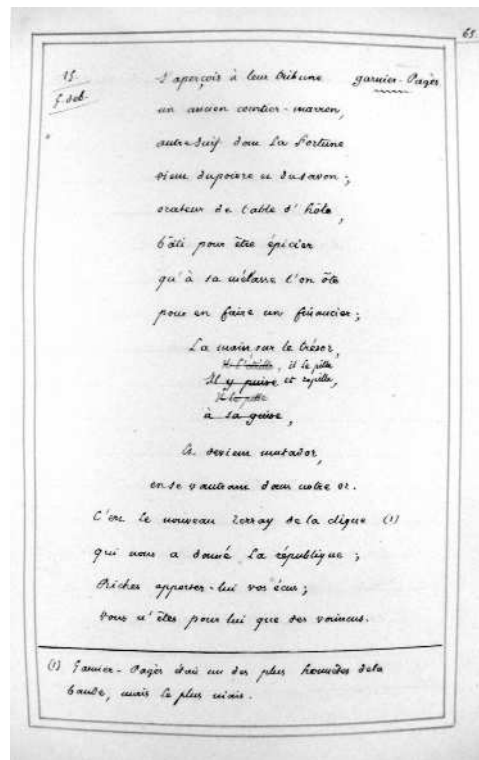 65.
15.
j'aperçois à leur tribune garnier-Pagès
un ancien courtier-marron,
autre juif dont la fortune
vient du poivre et du savon ;
orateur de table d'hôte,
bâti pour être épicier
qu'à sa mélasse l'on ôte
pour en faire un financier ;
La main sur le trésor,
il le pille
Il y puise et
il le pille
à sa guise,
Et devient matador,
en se vautrant dans notre or.
C'est le nouveau Terray de la clique (1)
qui nous a donné la république ;
Riches apportez-lui vos écus ;
vous n'êtes pour lui que des vaincus.
(1) Garnier-Pagès était un des plus honnêtes de la
bande, mais le plus niais.